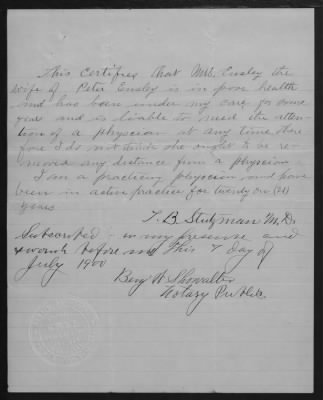 This Certifies that Mrs. Ensley the
wife of Peter Ensley is in poor health
and has been under my care for some
years and is liable to need the atten-
tion of a physician at any time there
fore I do not think she ought to be re-
moved any distance from a physician
I am a practicing physician and have
been in active practice for twenty one (21)
years
T. B. Stutzman M.D.
Subscribed in my presence and
sworn before me This 7 day of
July 1900
Benj. H. Showalter
Notary Public